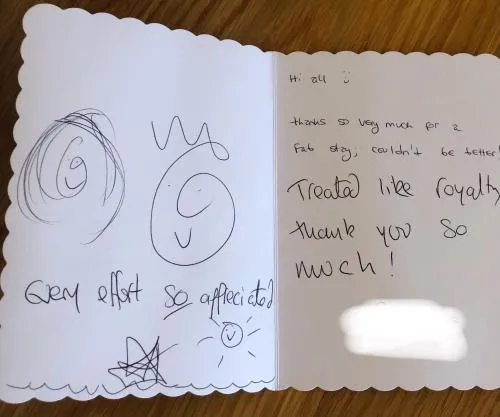 Every effort so appreciated
Hi all :)
thanks so very much for a
fab stay; couldn't be better!
Treated like royalty
thank you so
much!